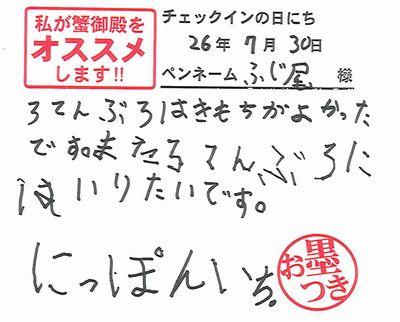 私が蟹御殿を
オススメ
します!!
チェックインの日にち
26年 7月 30日
ペンネーム ふじ尾 様
ろてんぶろはきもちがよかった
です。またろてんぶろに
はいりたいです。
にっぽんいち。
お墨つき